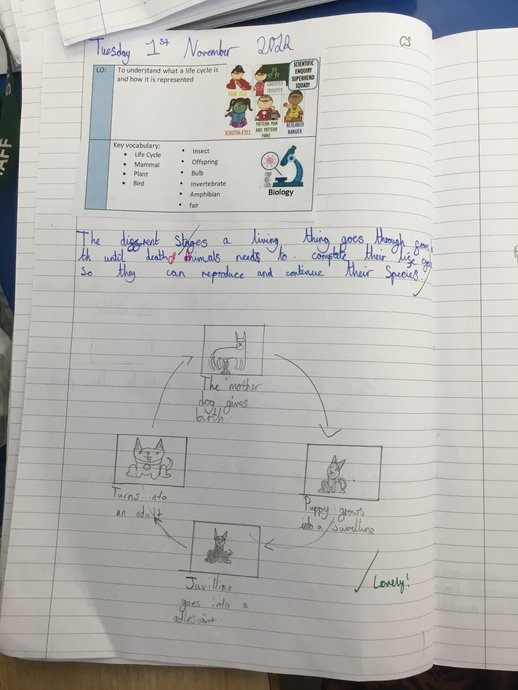 Tuesday 1st November 2022
CS
LO:
To understand what a life cycle is
and how it is represented
SCIENTIFIC
ENQUIRY
SUPERHERO
SQUAD!
FAIR TED
GROUPIE
TROOPER
SCRUTIN-EYES
PATTERN PAN
AND PATTERN
PAWS
RESEARCH
RANGER
Key vocabulary:
• Life Cycle
• Mammal
• Plant
• Bird
• Insect
• Offspring
• Bulb
• Invertebrate
• Amphibian
• fair
Biology
The different stages a living thing goes through from
th until death. Animals needs to complete their life
So they can reproduce and continue their Species.
The mother
dog gives
birth
Puppy grows
into a Juvelline
Juvilline
goes into a
adlesant.
Turns into
an adult
Lovely!
AFF